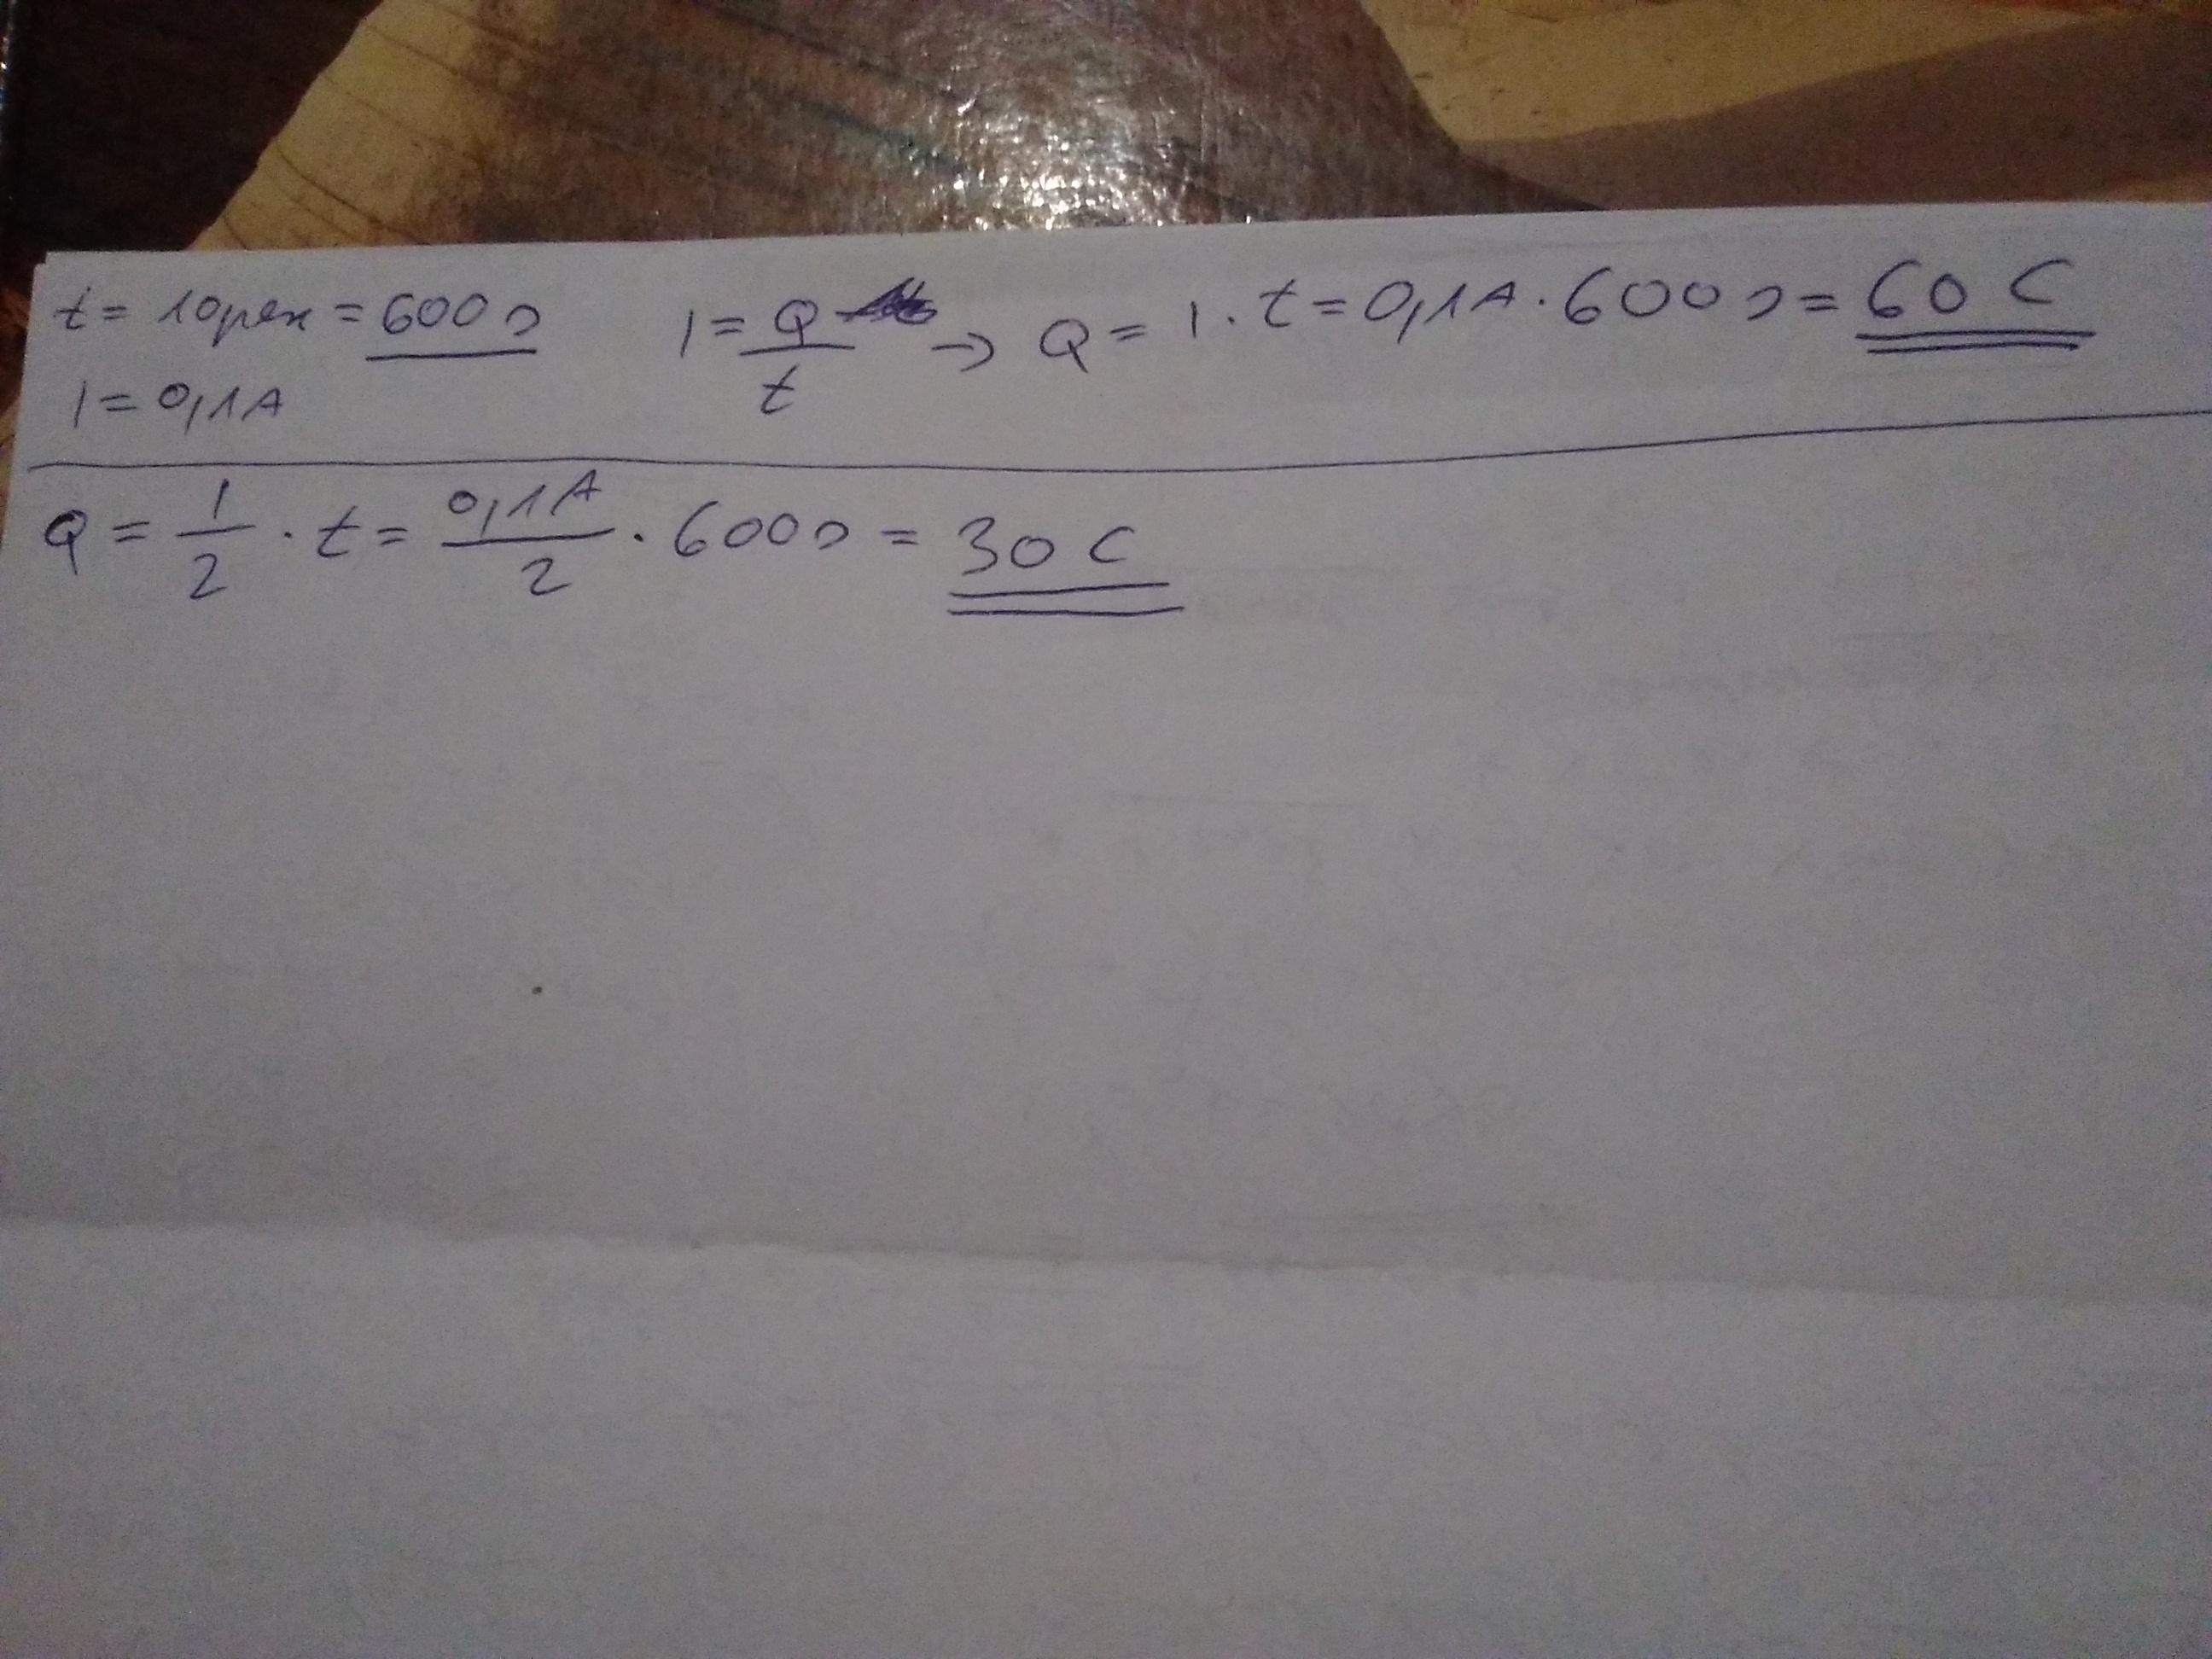 t = 10perc = 600 s I = Q/t → Q = I · t = 0,1A · 600 s = 60 C
I = 0,1A
Q = I/2 · t = 0,1A/2 · 600 s = 30 C